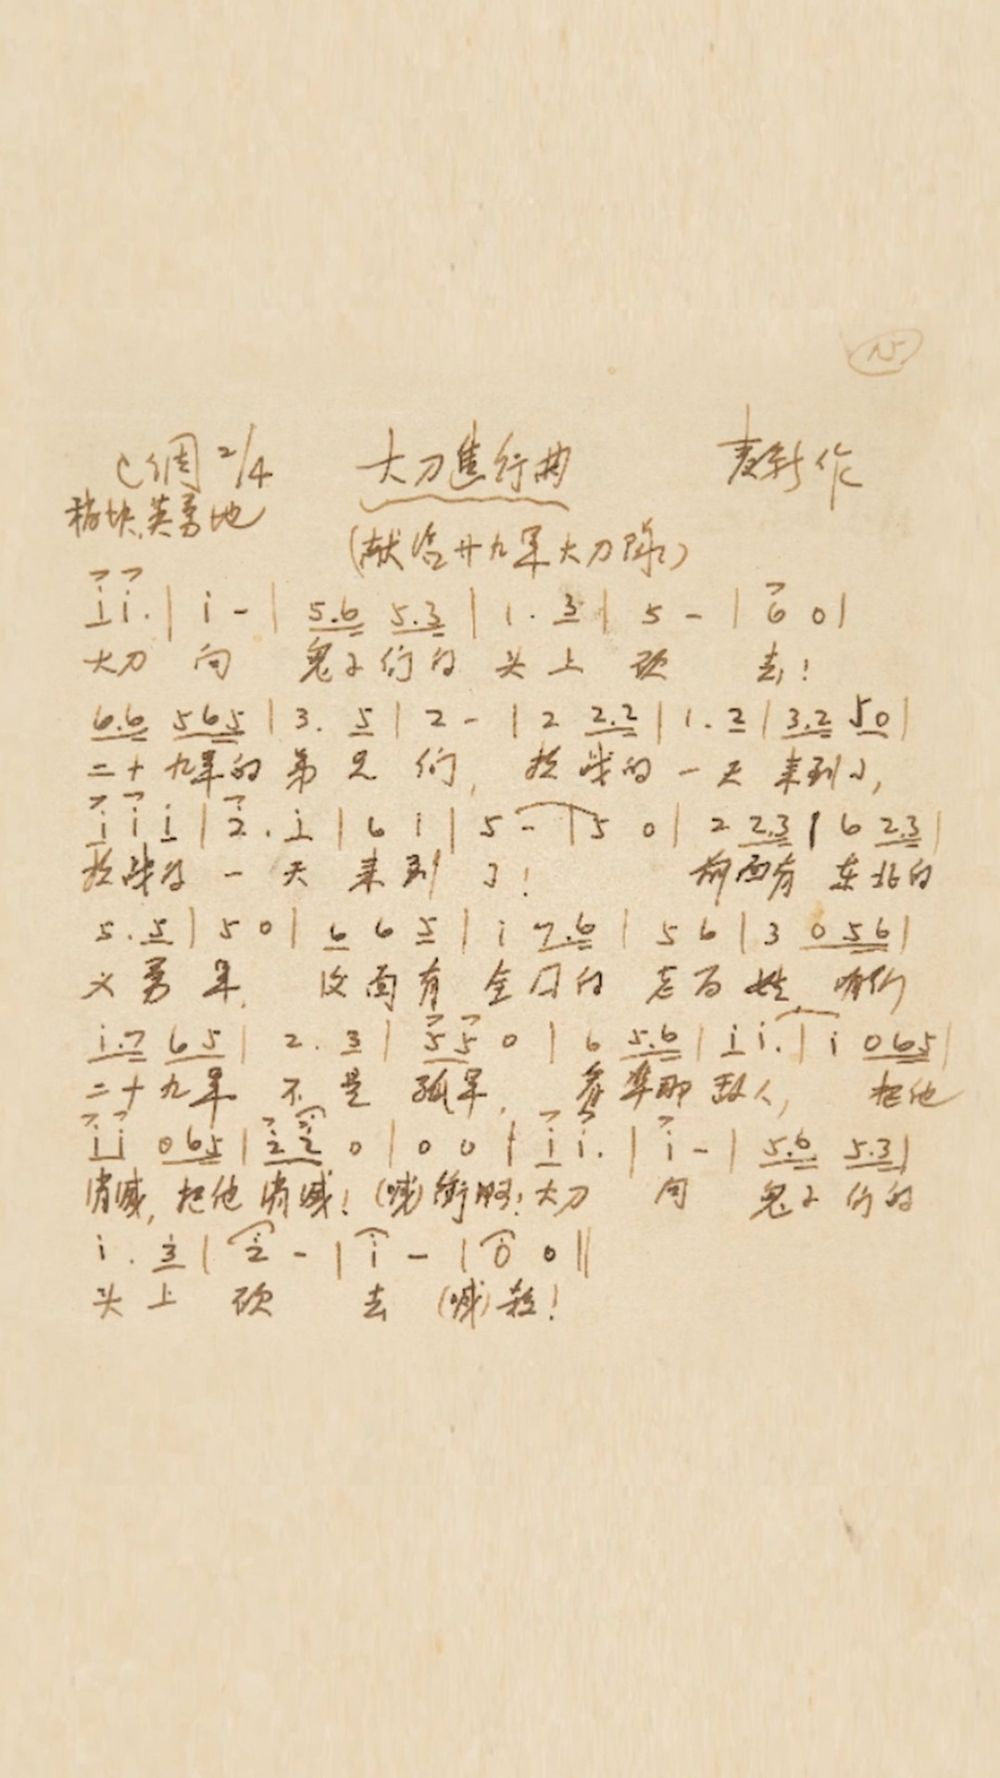 15
C调 2/4 大刀进行曲 麦新作
稍快、英勇地
(献给廿九军大刀队)
i i. | i - | 5.6 5.3 | 1. 3 | 5 - | 6 0 |
大刀 向 鬼子们的 头上 砍 去!
6.6 565 | 3. 5 | 2 - | 2 2.2 | 1. 2 | 3.2 50 |
二十九军的弟兄们, 抗战的一天来到了,
i i i | 2. i | 6 i | 5 - | 5 0 | 2 2.3 | 6 2.3 |
抗战的一天来到了! 前面有东北的
5. 5 | 5 0 | 6 6 5 | i 7.6 | 5 6 | 3 056 |
义勇军, 后面有全国的老百姓 咱们
i.7 65 | 2. 3 | 55 0 | 6 5.6 | i i. | i 065 |
二十九军不是孤军, 看准那敌人, 把他
i i 065 | 2 2 0 | 0 0 | i i. | i - | 5.6 5.3 |
消灭, 把他消灭! (喊)冲啊! 大刀 向 鬼子们的
i. 3 | 2 - | i - | 0 0 ||
头上 砍 去 (喊)杀!